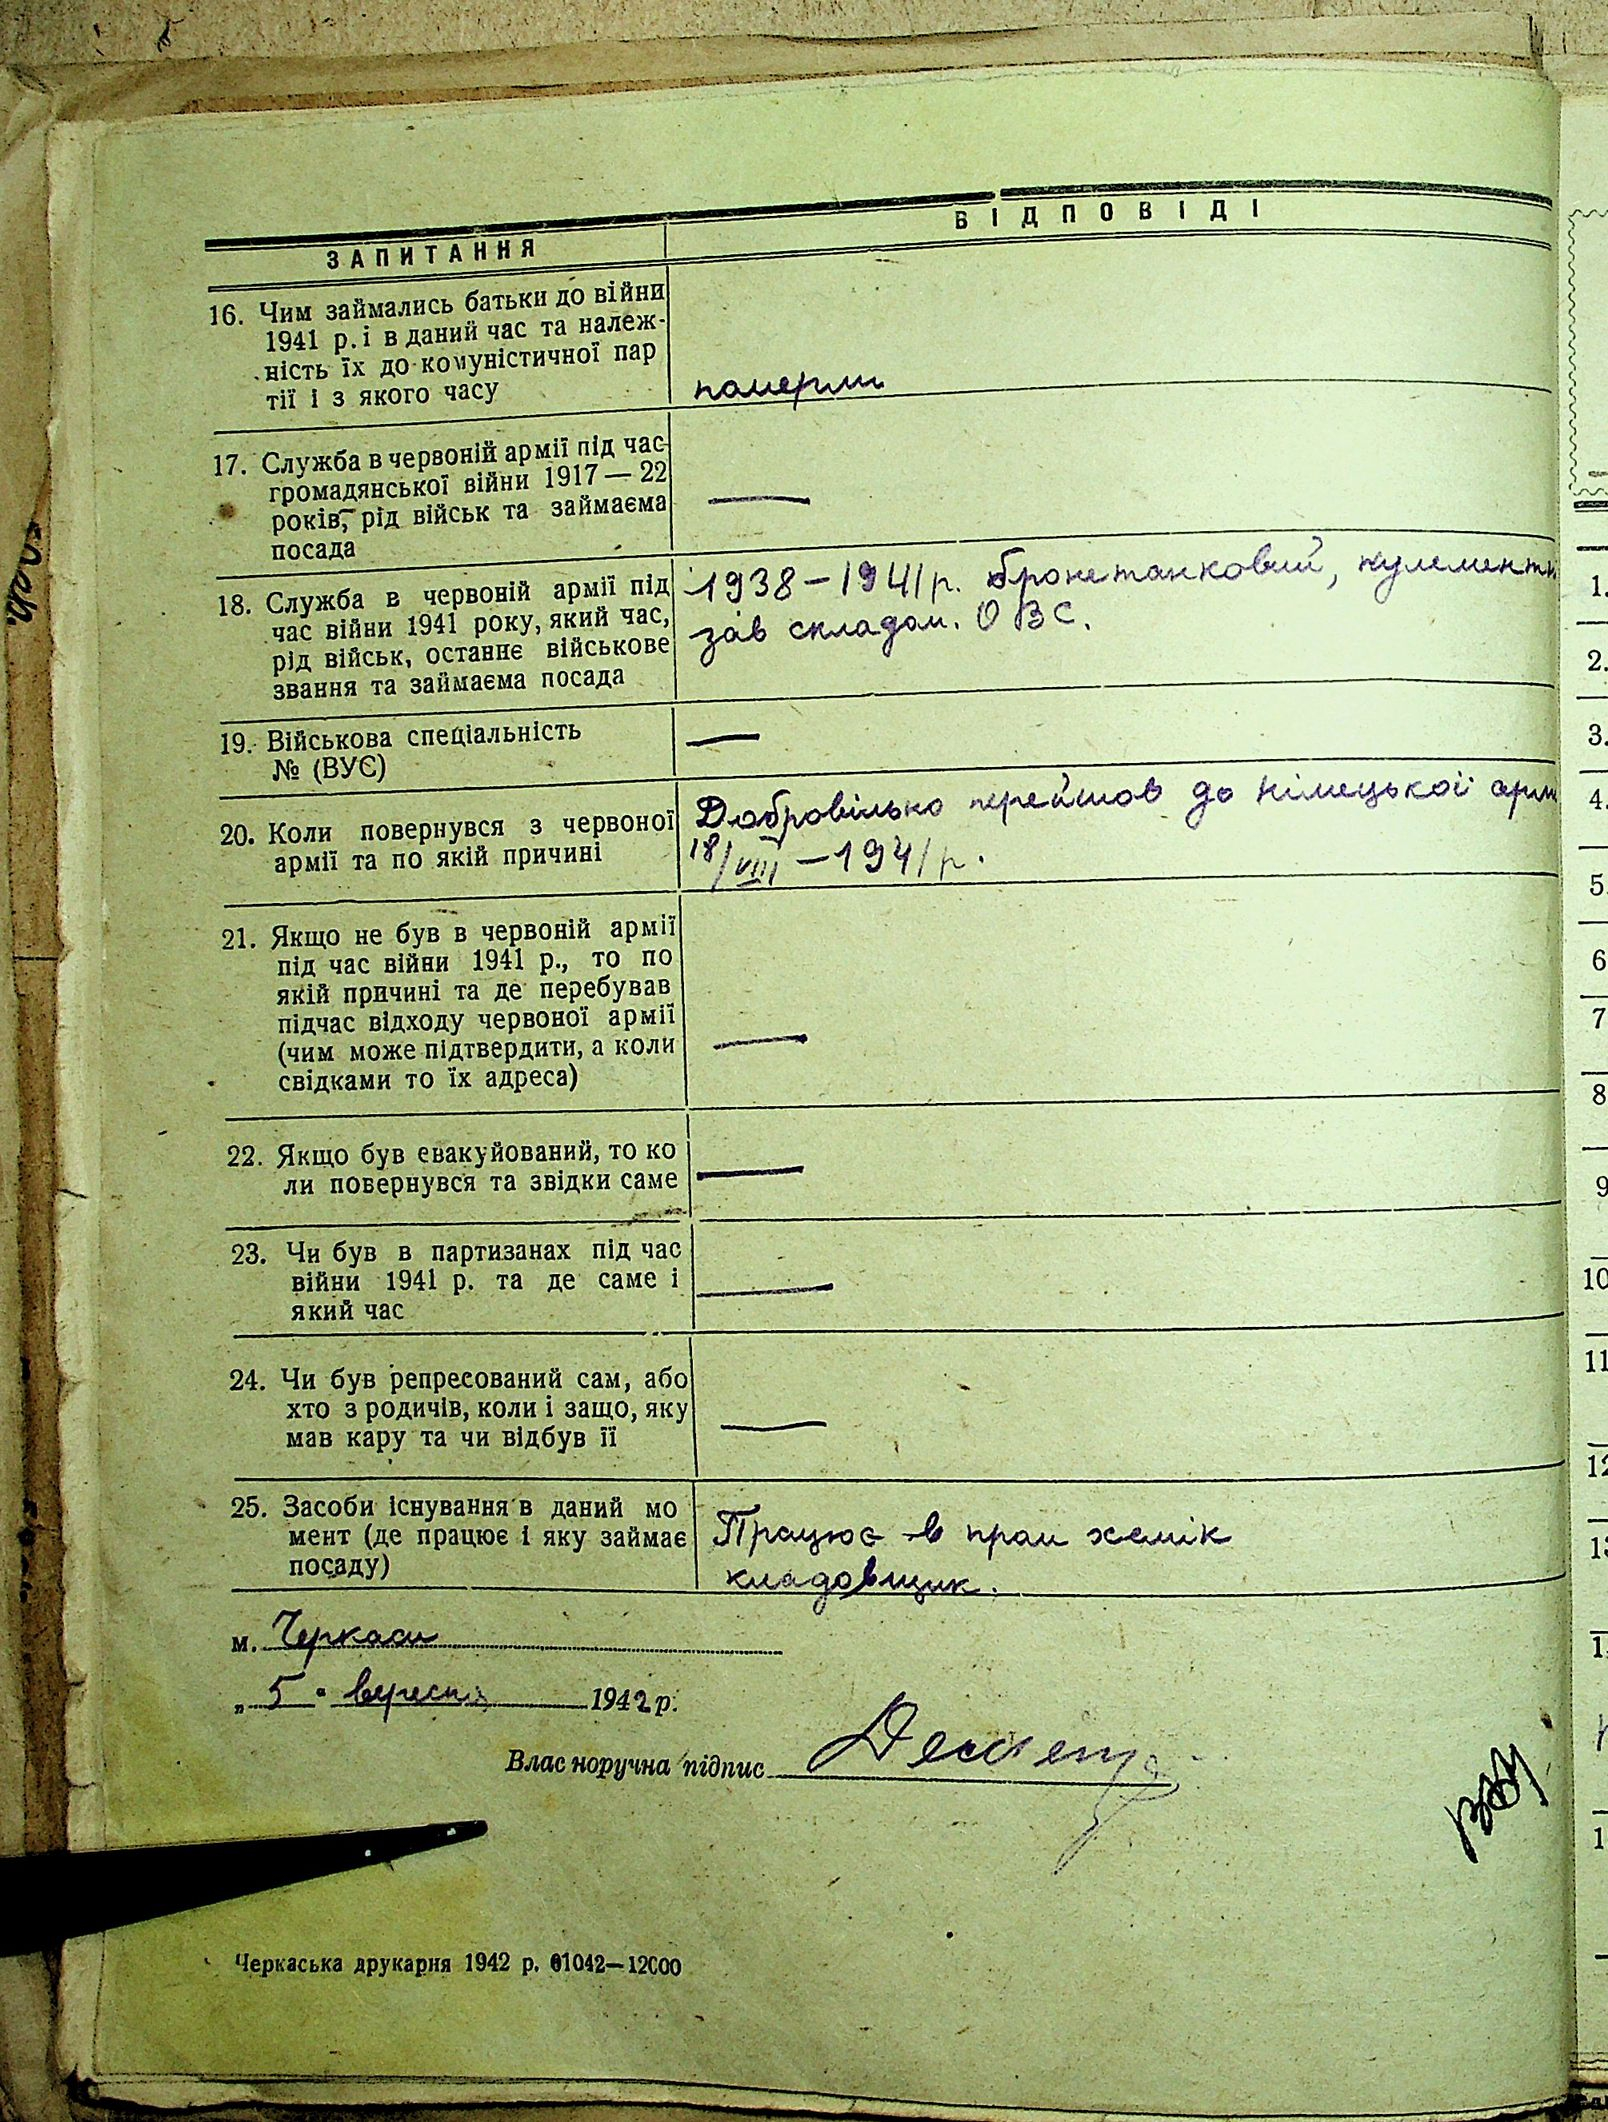 ЗАПИТАННЯ
ВІДПОВІДІ
16. Чим займались батьки до війни
1941 р. і в даний час та належ-
ність їх до комуністичної пар
тії і з якого часу
померли
17. Служба в червоній армії під час
громадянської війни 1917 — 22
років, рід військ та займаєма
посада
—
18. Служба в червоній армії під
час війни 1941 року, який час,
рід військ, останнє військове
звання та займаєма посада
1938 – 1941 р. бронетанковий, кулеметн
зав складом. О В С.
19. Військова спеціальність
№ (ВУЄ)
—
20. Коли повернувся з червоної
армії та по якій причині
Добровілько перейшов до німецької арм
18/VIII – 1941 р.
21. Якщо не був в червоній армії
під час війни 1941 р., то по
якій причині та де перебував
підчас відходу червоної армії
(чим може підтвердити, а коли
свідками то їх адреса)
—
22. Якщо був евакуйований, то ко
ли повернувся та звідки саме
—
23. Чи був в партизанах під час
війни 1941 р. та де саме і
який час
—
24. Чи був репресований сам, або
хто з родичів, коли і защо, яку
мав кару та чи відбув її
—
25. Засоби існування в даний мо
мент (де працює і яку займає
посаду)
Працює в пром хемік
кладовщик.
м. Черкаси
„ 5 " вересня 1942 р.
Власноручна підпис
Черкаська друкарня 1942 р. 01042—12000
1.
2.
3.
4.
5.
6
7
8
9
10
11
12